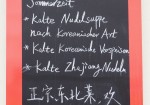 Sommerzeit
* Kalte Nudelsuppe
nach Koreanischer Art
* Kalte Koreanische Vorspeisen
* Kalte Zhajiang-Nudeln
正宗东北菜